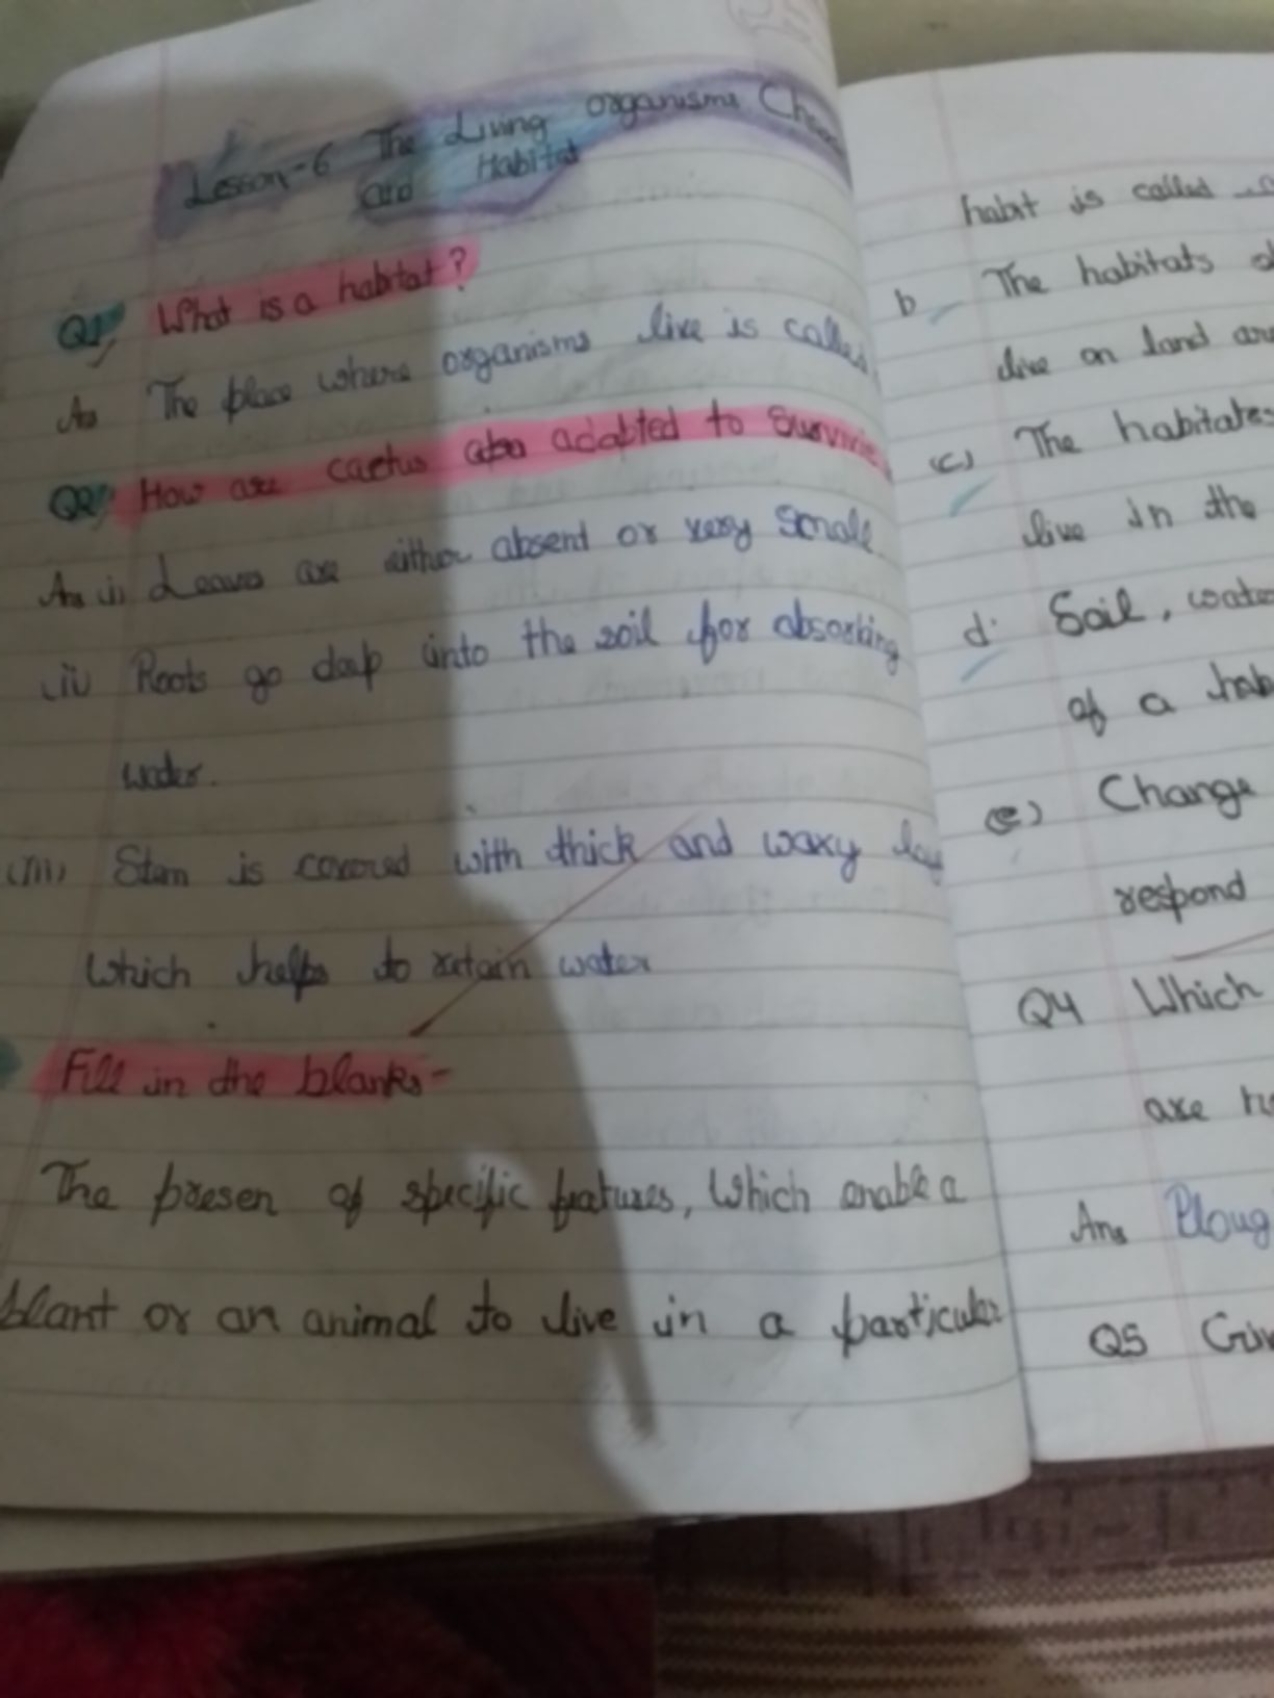 Lesson-6 The Living organisms
and Habitat
Q1, What is a habitat?
As The place where organisms live is called
Q2, How are cactus adapted to
As (i) Leaves are either absent or very small
(ii) Roots go deep into the soil for absorbing
water.
(iii) Stem is covered with thick and waxy lay
which helps to retain water
Fill in the blanks-
The presen of specific features, which enable a
plant or an animal to live in a particular
habit is called
b The habitats of
live on land are
(c) The habitates
live in the
d. Soil, wate
of a hab
(e) Change
respond
Q4 Which
are
Ans Ploug
Q5 Giv